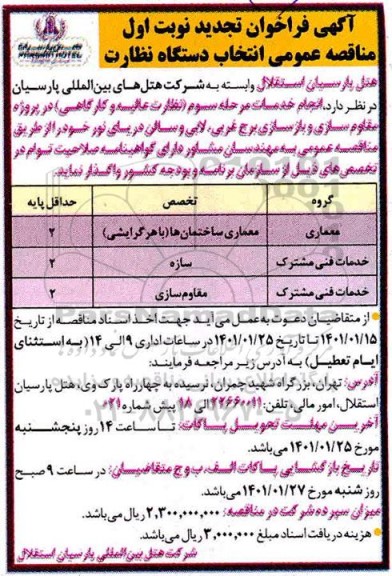 آگهی فراخوان تجدید نوبت اول
مناقصه عمومی انتخاب دستگاه نظارت
PARSIAN HOTEL
هتل پارسیان استقلال وابسته به شرکت هتل‌های بین‌المللی پارسیان
در نظر دارد، انجام خدمات مرحله سوم (نظارت عالیه و کارگاهی) در پروژه
مقاوم سازی و بازسازی برج غربی، لابی و سالن دریای نور خود را از طریق
مناقصه عمومی به مهندسان مشاور دارای گواهینامه صلاحیت توام در
تخصص‌های ذیل از سازمان برنامه و بودجه کشور واگذار نماید.
گروه تخصص حداقل پایه
معماری معماری ساختمان‌ها (با هر گرایشی) ۲
خدمات فنی مشترک سازه ۲
خدمات فنی مشترک مقاوم‌سازی ۲
از متقاضیان دعوت به عمل می آید جهت اخذ اسناد مناقصه از تاریخ
۱۴۰۱/۰۱/۱۵ تا تاریخ ۱۴۰۱/۰۱/۲۵ در ساعات اداری ۹ الی ۱۴ (به استثنای
ایام تعطیل) به آدرس زیر مراجعه فرمایند:
آدرس: تهران، بزرگراه شهید چمران، نرسیده به چهارراه پارک وی، هتل پارسیان
استقلال، امور مالی، تلفن: ۲۲۶۶۰۰۱۱ الی ۱۸ پیش شماره ۰۲۱
آخرین مهلت تحویل پاکات: تا ساعت ۱۴ روز پنجشنبه
مورخ ۱۴۰۱/۰۱/۲۵ می‌باشد.
تاریخ بازگشایی پاکات الف، ب و ج متقاضیان: در ساعت ۹ صبح
روز شنبه مورخ ۱۴۰۱/۰۱/۲۷ می‌باشد.
میزان سپرده شرکت در مناقصه: ۲,۳۰۰,۰۰۰,۰۰۰ ریال می‌باشد.
هزینه دریافت اسناد مبلغ ۳,۰۰۰,۰۰۰ ریال می‌باشد.
شرکت هتل بین المللی پارسیان استقلال